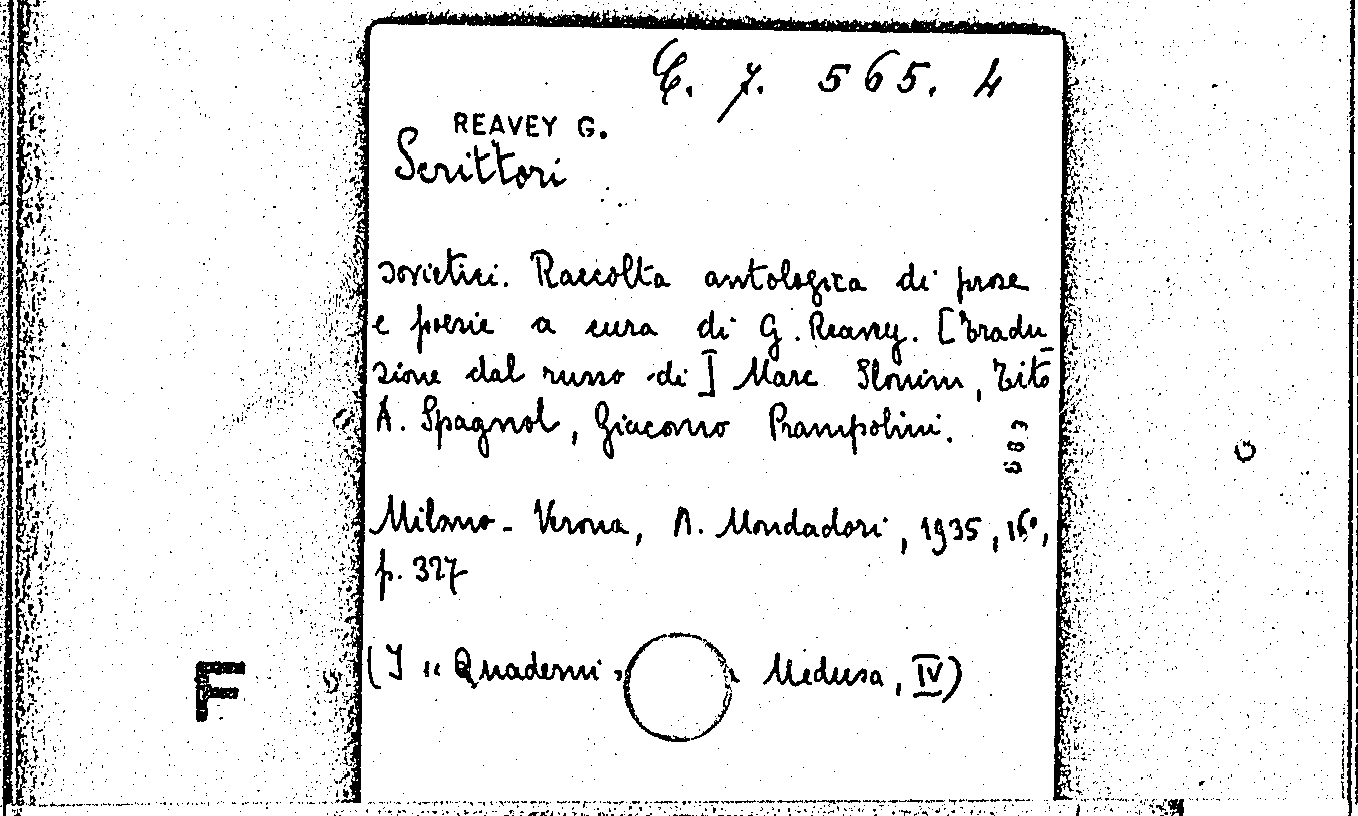 C. 7. 565. 4
REAVEY G.
Scrittori
sovietici. Raccolta antologica di prose
e poesie a cura di G. Reavey. [Tradu-
zione dal russo di] Marc Slonim, Tito
A. Spagnol, Giacomo Prampolini.
Milano - Verona, A. Mondadori, 1935, 16°,
p. 327
(I "Quaderni" Medusa, IV)
F